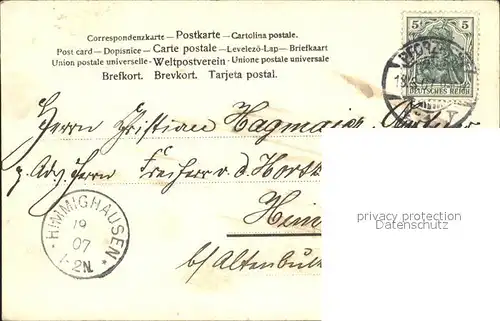 Correspondenzkarte — Postkarte — Cartolina postale.
Post card — Dopisnice — Carte postale — Levelező-Lap — Briefkaart
Union postale universelle — Weltpostverein — Unione postale universale
Brefkort. Brevkort. Tarjeta postal.
5 5
DEUTSCHES REICH
Herrn Christian Hagmaier
Herrn Freiherr v. d.
b/ Altenb
HIMMIGHAUSEN
19
07
1-2N.
privacy protection
Datenschutz